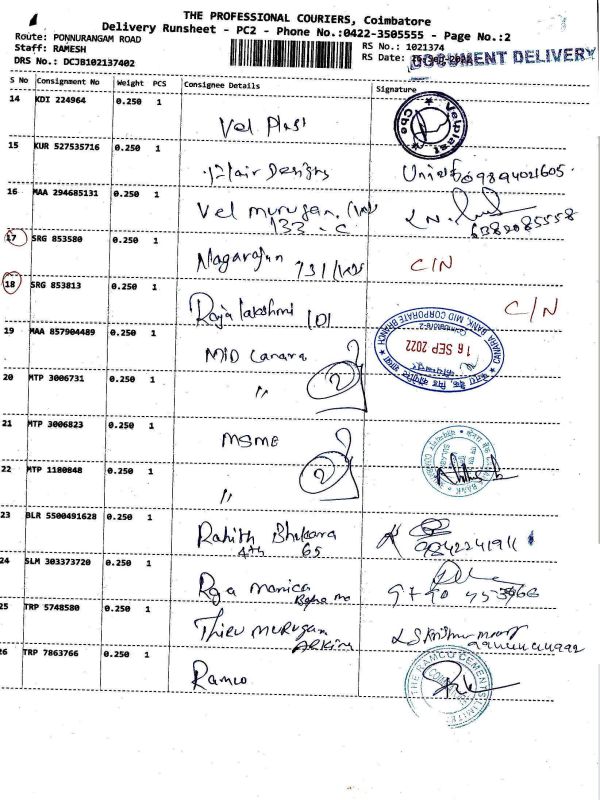 THE PROFESSIONAL COURIERS, Coimbatore
Delivery Runsheet - PC2 - Phone No.:0422-3505555 - Page No.:2
Route: PONNURANGAM ROAD
Staff: RAMESH
DRS No.: DCJB102137402
RS No.: 1021374
RS Date:
DOCUMENT DELIVERY
S No Consignment No Weight PCS Consignee Details Signature
14 KDI 224964 0.250 1 Vel Plast
Velplast Cbe
15 KUR 527535716 0.250 1 Flair Designs 9894021605
16 MAA 294685131 0.250 1 Vel murugan
133 - C 6382085558
17 SRG 853580 0.250 1 Nagarajan 731 C/N
18 SRG 853813 0.250 1 Rajalakshmi 101 C/N
19 MAA 857904489 0.250 1 MID Canara
CANARA BANK, MID CORPORATE BRANCH
16 SEP 2022
20 MTP 3006731 0.250 1 〃 2
21 MTP 3006823 0.250 1 MSME
22 MTP 1180848 0.250 1 〃 2
23 BLR 5500491628 0.250 1 Rohith
4th 65 9842241911
24 SLM 303373720 0.250 1 Raja manica
25 TRP 5748580 0.250 1 Thiru murugan
26 TRP 7863766 0.250 1 Ramco
THE RAMCO CEMENTS LIMITED